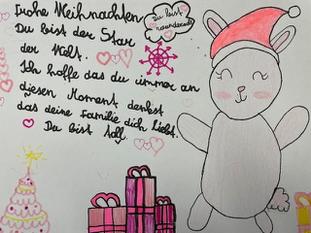 Frohe Weihnachten
Du bist der Star
der Welt.
Ich hoffe das du immer an
diesen Moment denkst
das deine Familie dich Liebt.
Du bist toll.
Du bist
wundervoll